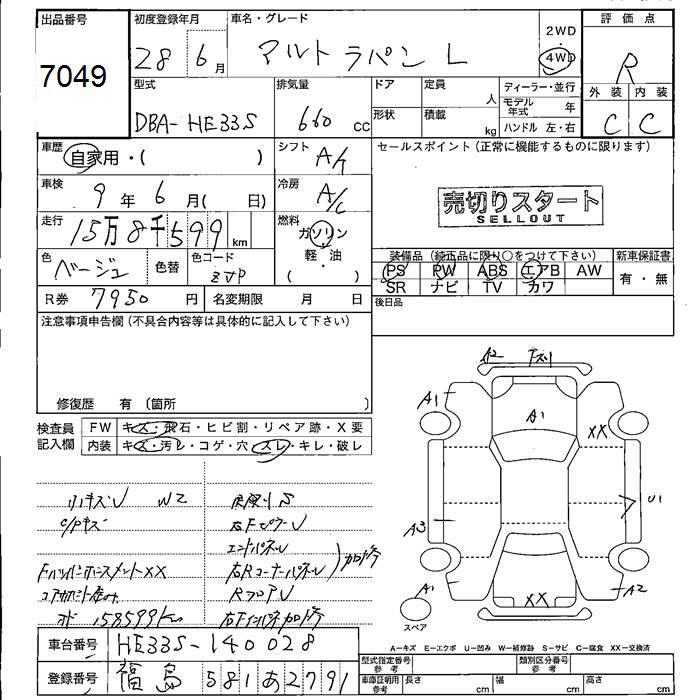 出品番号
7049
初度登録年月
28 6月
車名・グレード
アルト ラパン L
2WD
4WD
評価点
R
外装 内装
C C
型式
DBA-HE33S
排気量
660 cc
ドア
形状
定員 人
積載 kg
ディーラー・並行
モデル年式 年
ハンドル 左・右
車歴
自家用・( )
シフト
A/T
セールスポイント(正常に機能するものに限ります)
車検
9年 6月( 日)
冷房
A/C
売切りスタート
SELLOUT
走行
15万8千599 km
燃料
ガソリン
軽・油
( )
色
ベージュ
色替
色コード
ZVP
装備品(純正品に限り○をつけて下さい)
PS PW ABS エアB AW
SR ナビ TV カワ
新車保証書
有・無
R券 7950 円
名変期限 月 日
後日品
注意事項申告欄(不具合内容等は具体的に記入して下さい)
修復歴 有〔箇所 〕
検査員記入欄
FW キズ・飛石・ヒビ割・リペア跡・X要
内装 キズ・汚レ・コゲ・穴・スレ・キレ・破レ
W2
右Fピラー
エンドパネル
右Rコーナーパネル
Rフロア
加修
XX
158599km
A2
A1
A1
XX
U1
A3
A1
A2
XX
スペア
A-キズ E-エクボ U-凹み W-補修跡 S-サビ C-腐食 XX-交換済
車台番号
HE33S-140028
登録番号
福島 581あ2791
型式指定番号 参考
類別区分番号 参考
車庫証明用 参考
長さ cm
幅 cm
高さ cm